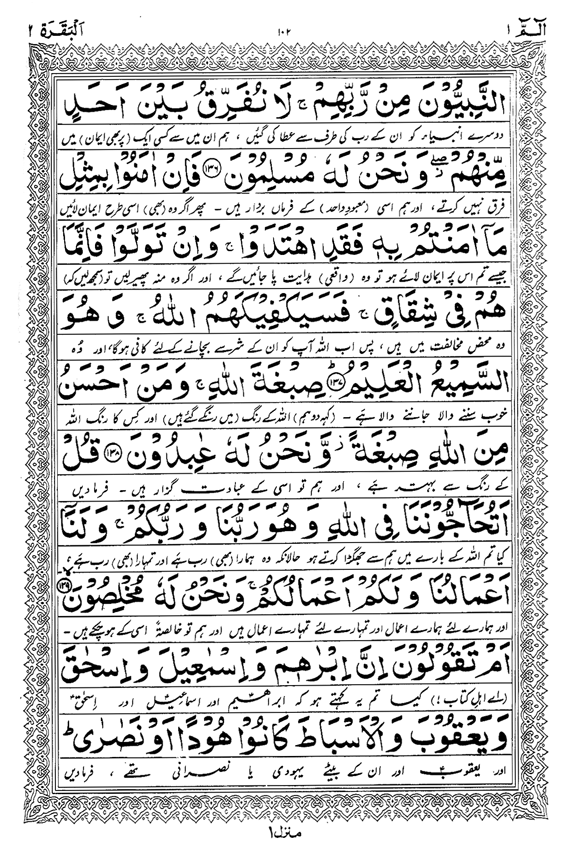 الٓمّٓ ١ ١٠٢ اَلْبَقَرَة ٢
النَّبِيُّوْنَ مِنْ رَّبِّهِمْ ۚ لَا نُفَرِّقُ بَيْنَ اَحَدٍ
دوسرے انبیاء کو ان کے رب کی طرف سے عطا کی گئیں ، ہم ان میں سے کسی ایک (پر بھی ایمان) میں
مِّنْهُمْ ۖ وَنَحْنُ لَهٗ مُسْلِمُوْنَ ۝۱۳۶ فَاِنْ اٰمَنُوْا بِمِثْلِ
فرق نہیں کرتے ، اور ہم اسی (معبودِ واحد) کے فرماں بردار ہیں ۔ پھر اگر وہ (بھی) اسی طرح ایمان لائیں
مَآ اٰمَنْتُمْ بِهٖ فَقَدِ اهْتَدَوْا ۚ وَاِنْ تَوَلَّوْا فَاِنَّمَا
جیسے تم اس پر ایمان لائے ہو تو وہ (واقعی) ہدایت پا جائیں گے ، اور اگر وہ منہ پھیر لیں تو (سمجھ لیں کہ)
هُمْ فِيْ شِقَاقٍ ۚ فَسَيَكْفِيْكَهُمُ اللّٰهُ ۚ وَهُوَ
وہ محض مخالفت میں ہیں ، پس اب اللہ آپ کو ان کے شر سے بچانے کے لئے کافی ہوگا ، اور وہ
السَّمِيْعُ الْعَلِيْمُ ۝۱۳۷ صِبْغَةَ اللّٰهِ ۚ وَمَنْ اَحْسَنُ
خوب سننے والا جاننے والا ہے ۔ (کہہ دو ہم) اللہ کے رنگ (میں رنگے گئے ہیں) اور کس کا رنگ اللہ
مِنَ اللّٰهِ صِبْغَةً ۫ وَّنَحْنُ لَهٗ عٰبِدُوْنَ ۝۱۳۸ قُلْ
کے رنگ سے بہتر ہے ، اور ہم تو اسی کے عبادت گزار ہیں ۔ فرما دیں
اَتُحَآجُّوْنَنَا فِي اللّٰهِ وَهُوَ رَبُّنَا وَرَبُّكُمْ ۚ وَلَنَآ
کیا تم اللہ کے بارے میں ہم سے جھگڑا کرتے ہو حالانکہ وہ ہمارا (بھی) رب ہے اور تمہارا (بھی) رب ہے ؟
اَعْمَالُنَا وَلَكُمْ اَعْمَالُكُمْ ۚ وَنَحْنُ لَهٗ مُخْلِصُوْنَ ۝۱۳۹
اور ہمارے لئے ہمارے اعمال اور تمہارے لئے تمہارے اعمال ہیں اور ہم تو خالصۃً اسی کے ہو چکے ہیں ۔
اَمْ تَقُوْلُوْنَ اِنَّ اِبْرٰهٖمَ وَاِسْمٰعِيْلَ وَاِسْحٰقَ
(اے اہلِ کتاب!) کیا تم یہ کہتے ہو کہ ابراہیم اور اسماعیل اور اسحٰق
وَيَعْقُوْبَ وَالْاَسْبَاطَ كَانُوْا هُوْدًا اَوْ نَصٰرٰى ؕ
اور یعقوب اور ان کے بیٹے یہودی یا نصرانی تھے ، فرما دیں
منزل ١